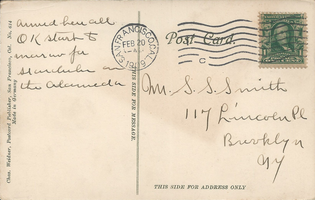 Arrived here all
OK start to
morrow for
Honolulu on
the Alameda
SAN FRANCISCO, CAL.
FEB 20
Post Card.
M. S. S. Smith
117 Lincoln Pl
Brooklyn
NY
THIS SIDE FOR MESSAGE.
THIS SIDE FOR ADDRESS ONLY
Chas. Weidner, Postcard Publisher, San Francisco, Cal. No.
Made in Germany